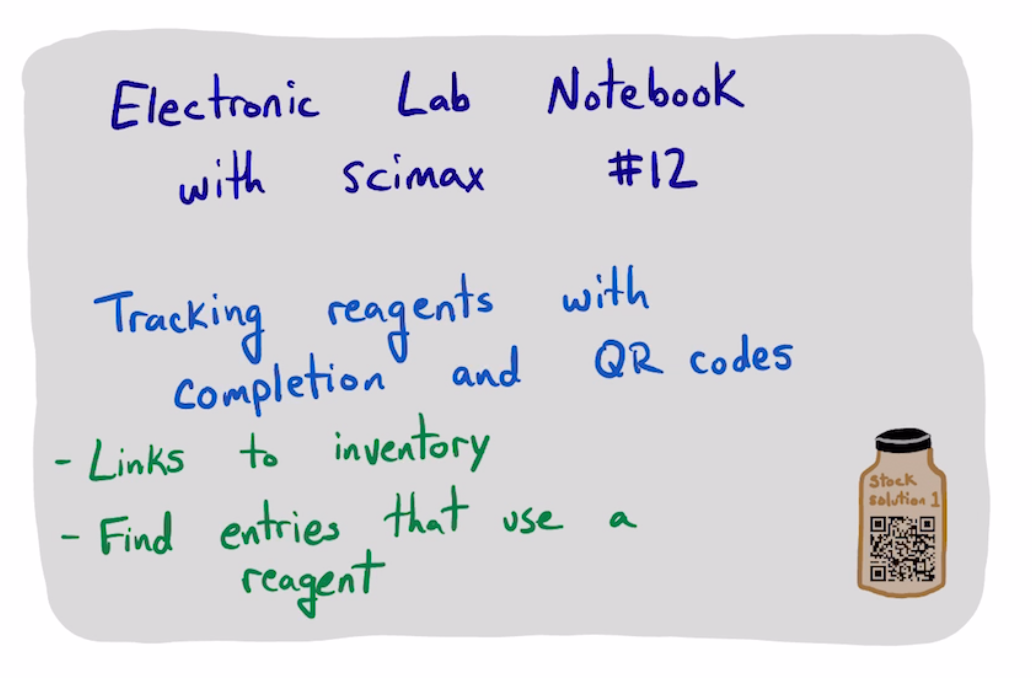 Electronic Lab Notebook
with scimax #12
Tracking reagents with
completion and QR codes
- Links to inventory
- Find entries that use a
reagent
Stock
solution 1